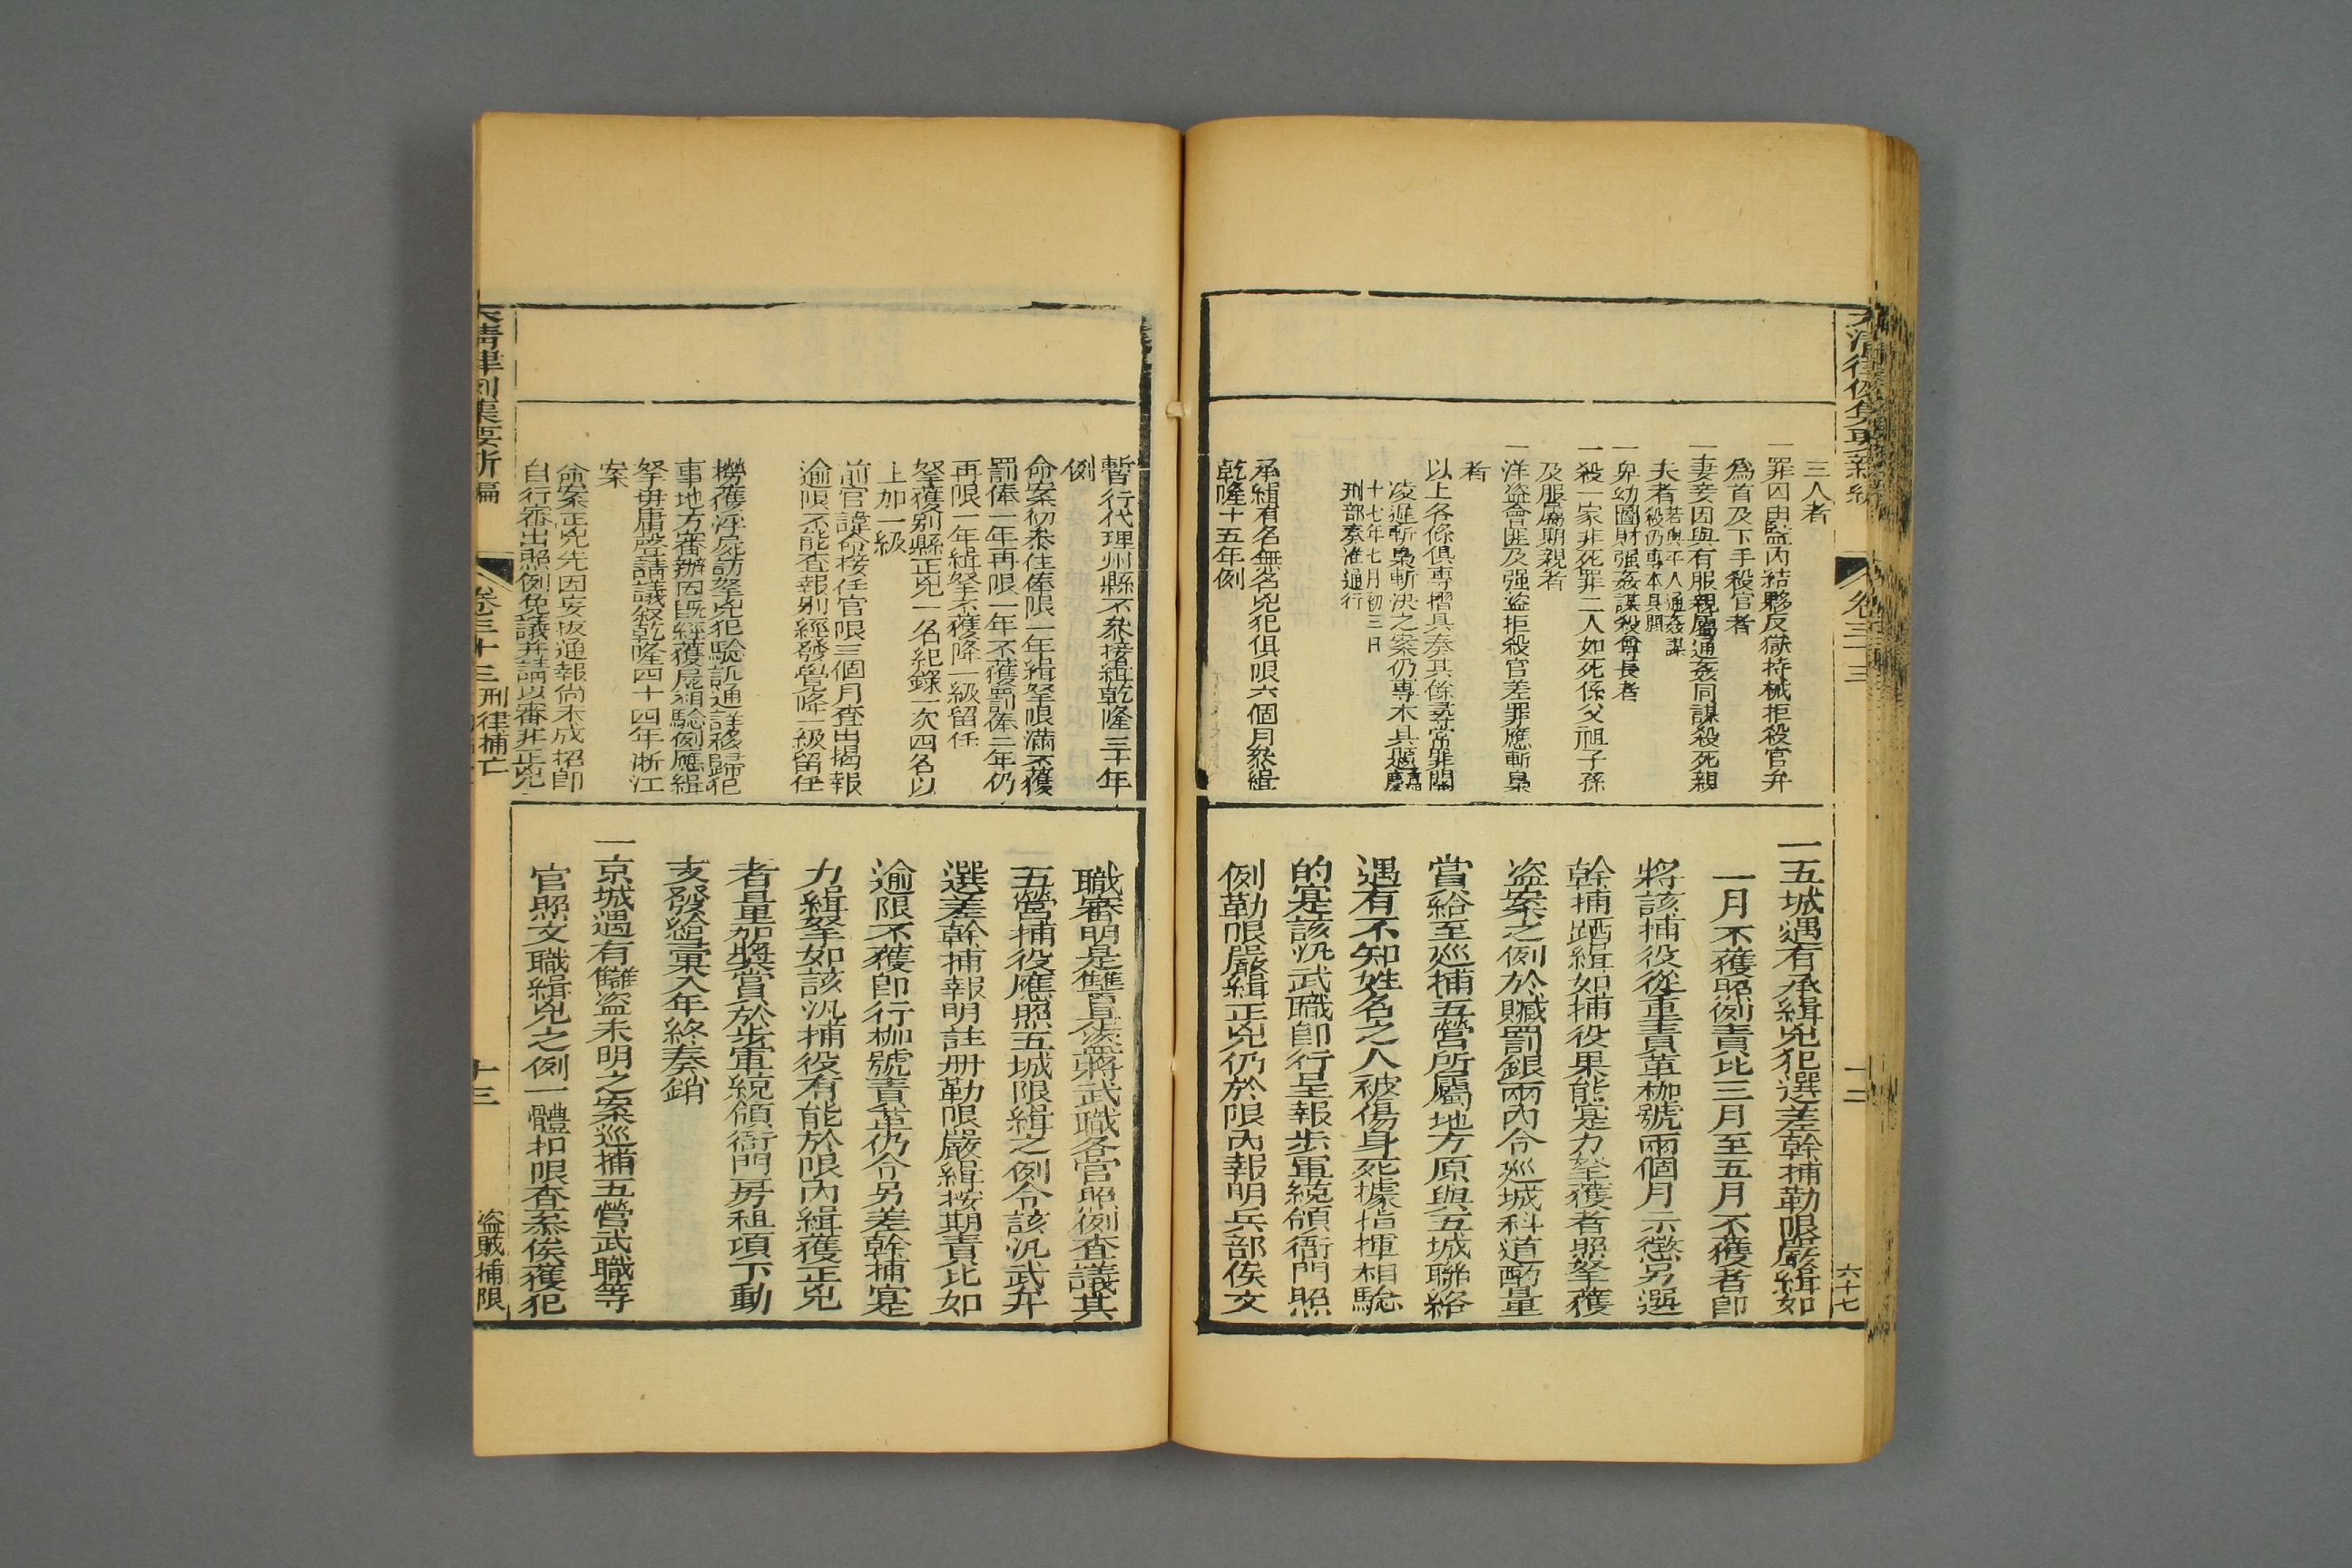 大清律例集要新編
卷三十三
十二
六十七
三人者
一罪囚由監內結夥反獄持械拒殺官弁
為首及下手殺官者
一妻妾因與有服親屬通姦同謀殺死親
夫者若與平人通姦謀殺仍專本具題
一卑幼圖財強姦謀殺尊長者
一殺一家非死罪二人如死係父祖子孫
及服屬期親者
一洋盜會匪及强盜拒殺官差罪應斬梟
者
以上各條俱專摺具奏其餘尋常罪關
凌遲斬梟斬決之案仍專本具題嘉慶
十七年七月初三日
刑部奏准通行
承緝有名無名兇犯俱限六個月叅緝
乾隆十五年例
一五城遇有承緝兇犯選差幹捕勒限嚴緝如
一月不獲照例責比三月至五月不獲者即
將該捕役從重責革枷號兩個月示懲另選
幹捕躧緝如捕役果能寔力拏獲者照拏獲
盜案之例於贓罰銀兩內令巡城科道酌量
賞給至巡捕五營所屬地方原與五城聯絡
遇有不知姓名之人被傷身死據指揮相驗
的寔該汛武職即行呈報步軍統領衙門照
例勒限嚴緝正兇仍於限內報明兵部俟文
暫行代理州縣不叅接緝乾隆三十年
例
命案初叅住俸限一年緝拏限滿不獲
罰俸一年再限一年不獲罰俸二年仍
再限一年緝拏不獲降一級留任
拏獲別縣正兇一名紀錄一次四名以
上加一級
前官諱命接任官限三個月查出揭報
逾限不能查報別經發覺降一級留任
撈獲浮屍訪拏兇犯驗訊通詳移歸犯
事地方審辦因旣經獲屍相驗例應緝
拏毋庸聲請議叙乾隆四十四年浙江
案
命案正兇先因妄扳通報尚未成招即
自行審出照例免議并請以審非正兇
職審明是讐是儘將武職各官照例查議其
五營捕役應照五城限緝之例令該汛武弁
選差幹捕報明註册勒限嚴緝按期責比如
逾限不獲即行枷號責革仍令另差幹捕寔
力緝拏如該汛捕役有能於限內緝獲正兇
者量加奬賞於步軍統領衙門房租項下動
支發給彙入年終奏銷
一京城遇有讐盜未明之案巡捕五營武職等
官照文職緝兇之例一體扣限查叅俟獲犯
大清律例集要新編
卷三十三
刑律捕亡
十三
盜賊捕限